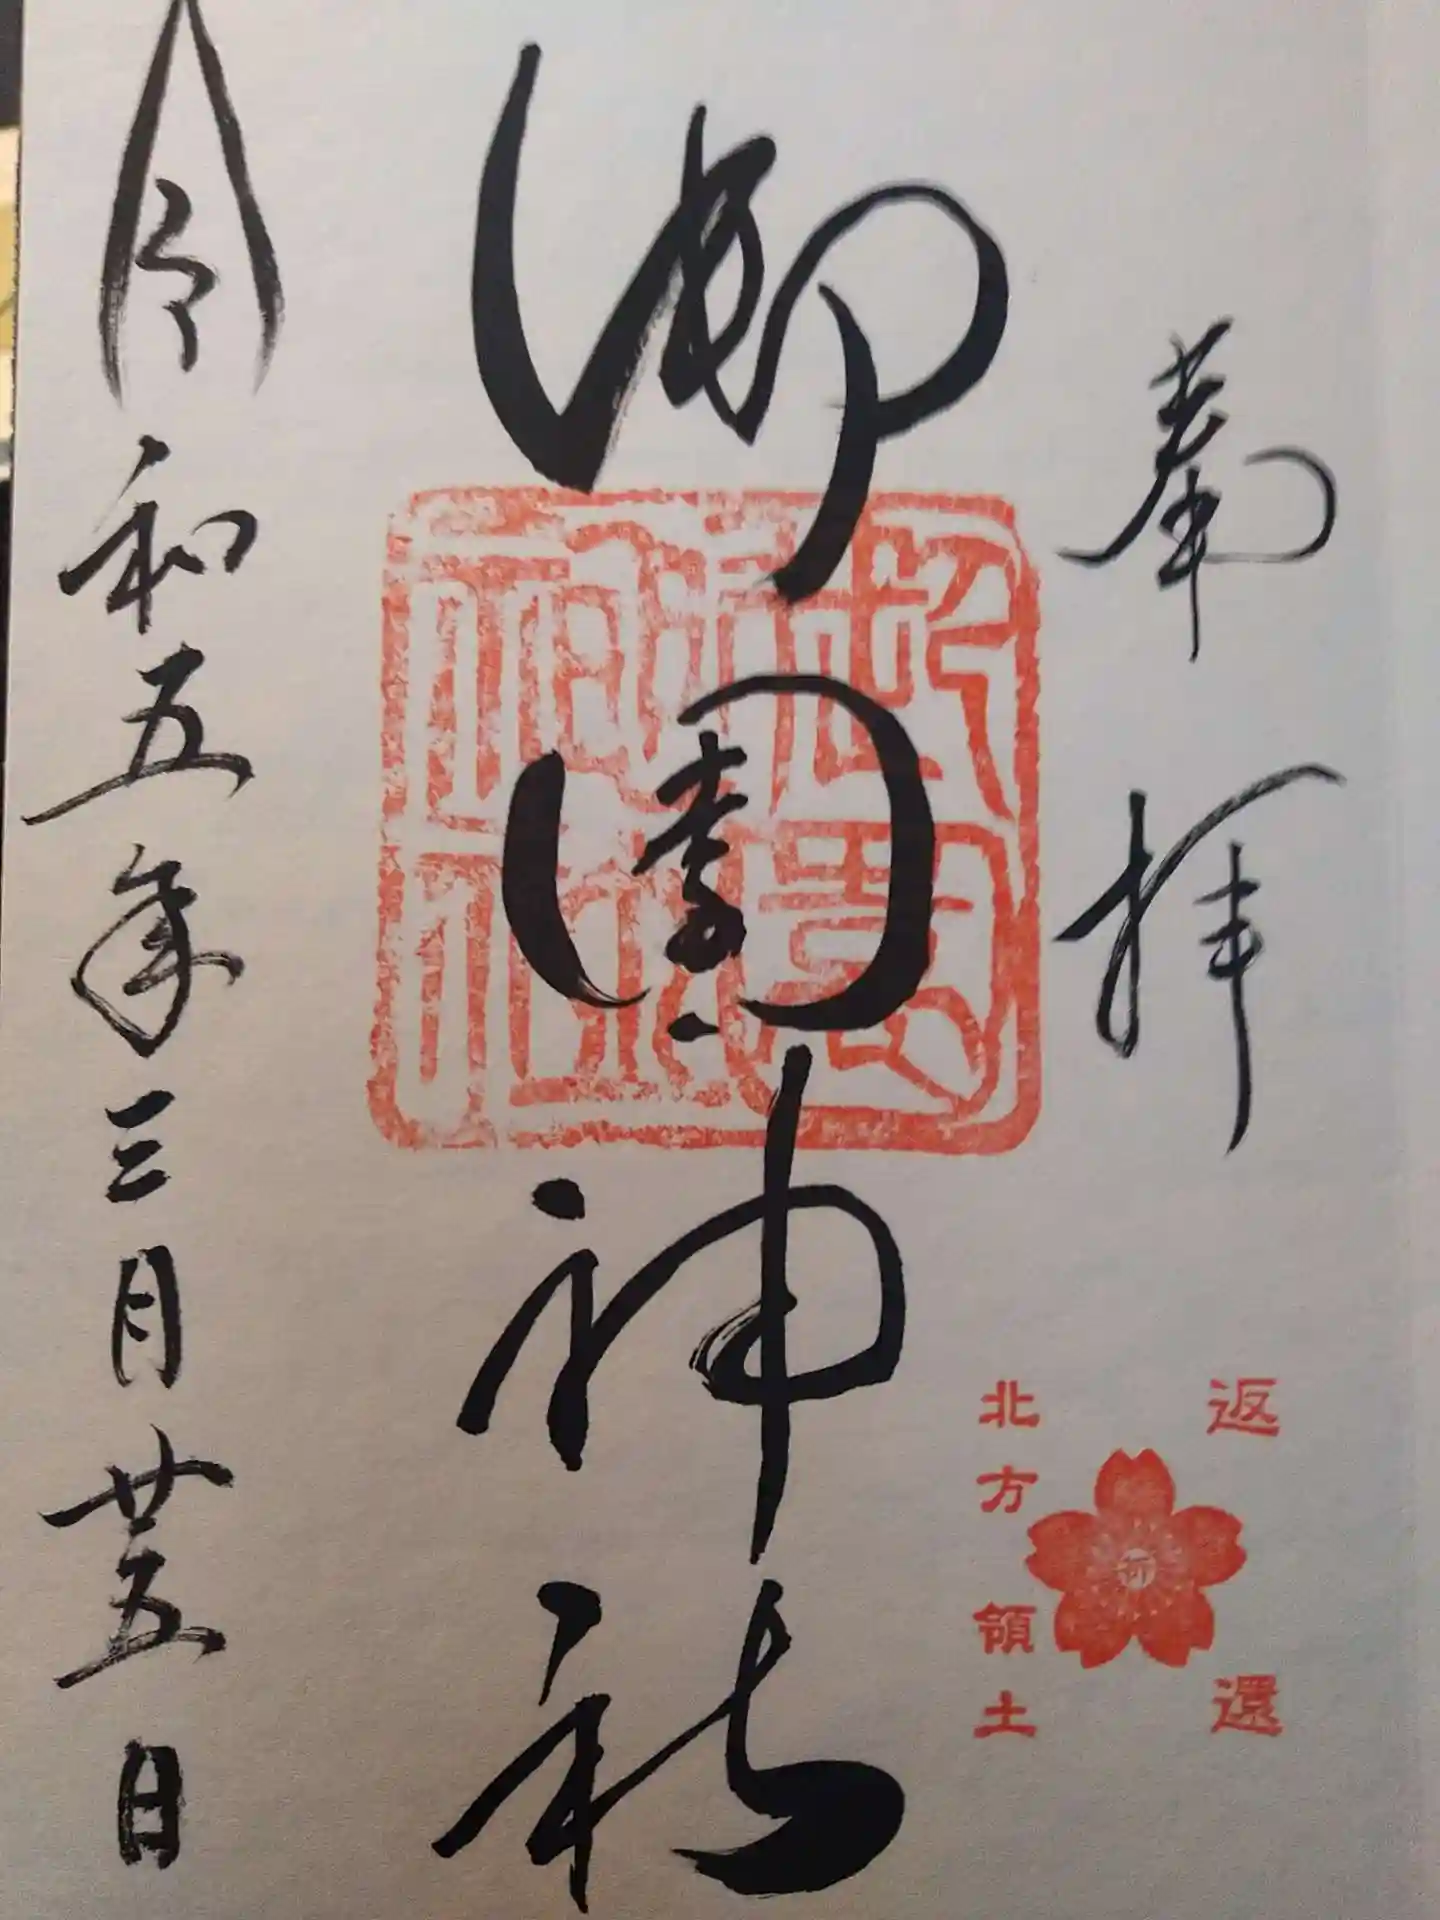 奉拝
返還
祈
北方領土
御園神社
令和五年三月廿五日